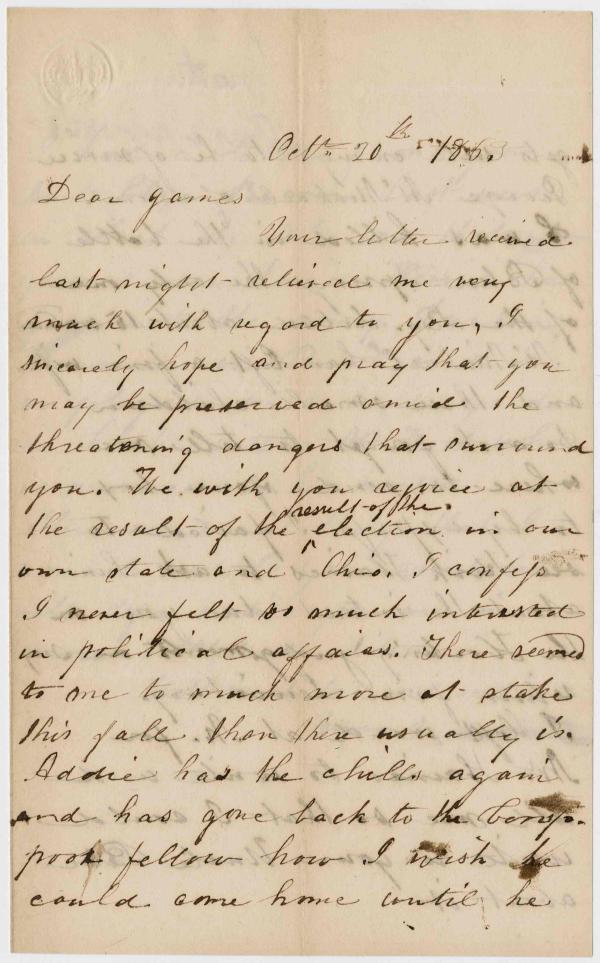 Octr. 20th 1863
Dear James
Your letter received
last night relieved me very
much with regard to you, I
sincerely hope and pray that you
may be preserved amid the
threatening dangers that surround
you. We with you rejoice at
result of the
the result of the election in our
own state and Ohio. I confess
I never felt so much interested
in political affairs. There seemed
to me to much more at stake
this fall than there usually is.
Addie has the chills again
and has gone back to the Corps.
poor fellow how I wish he
could come home until he